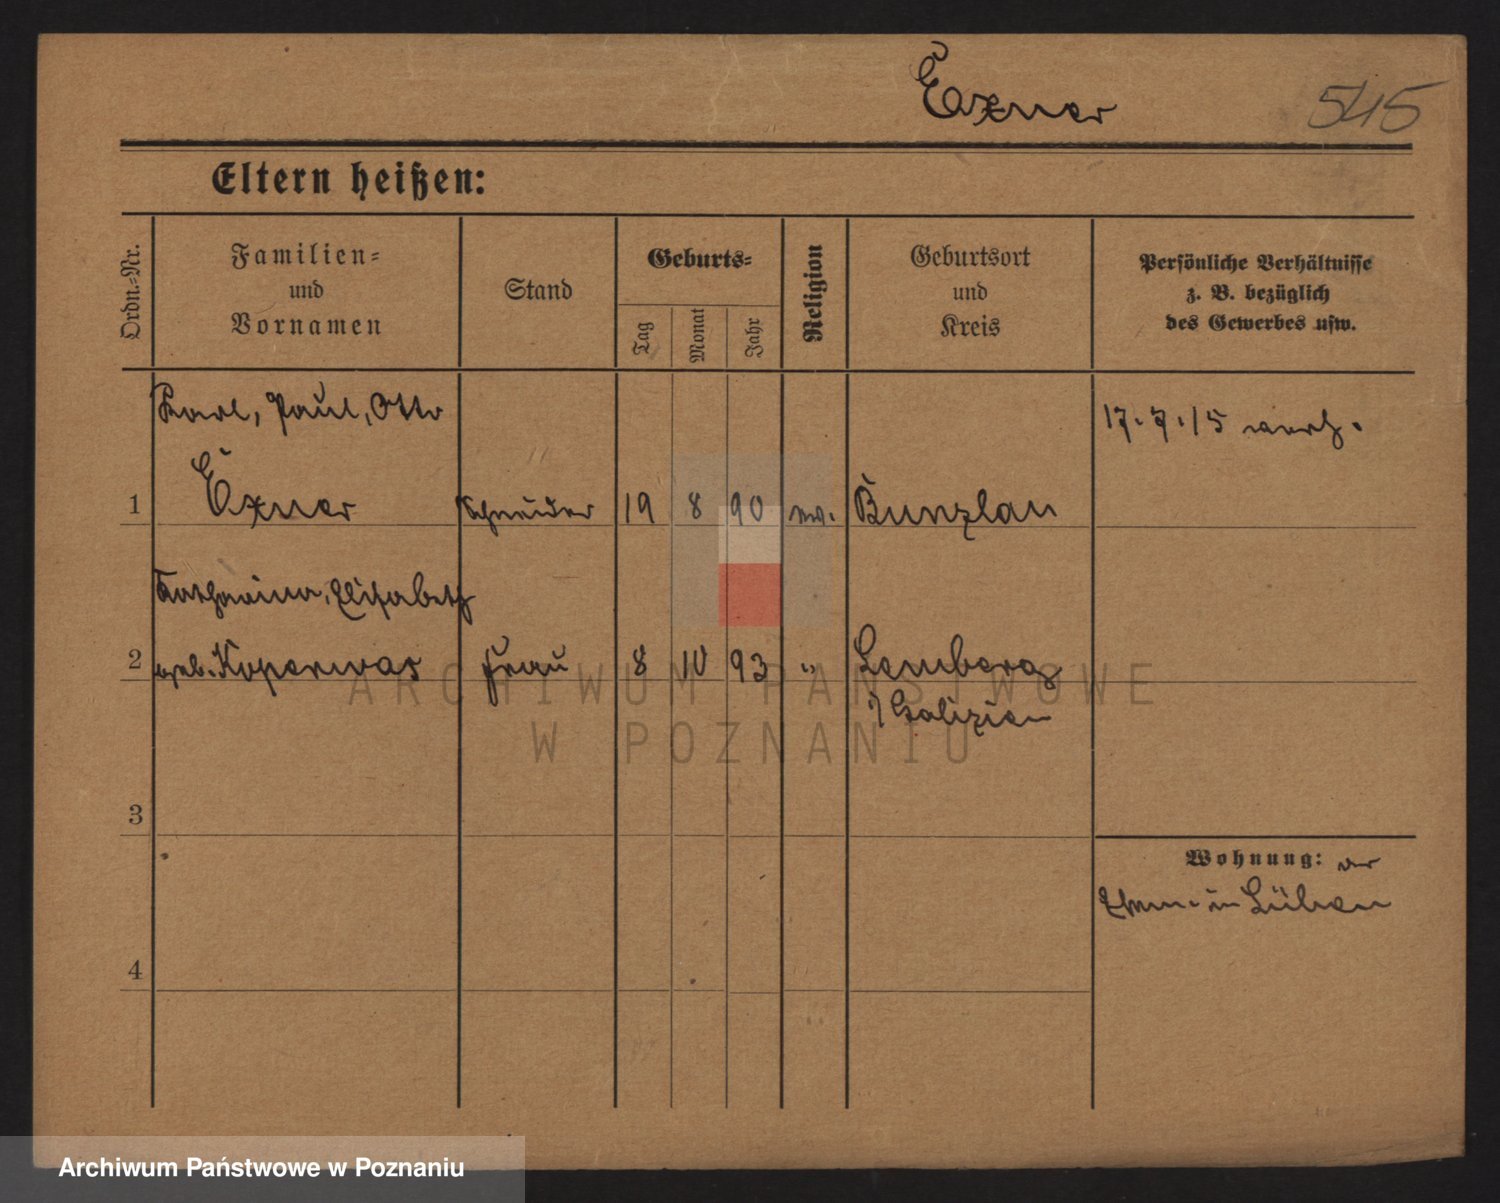 Exner 545
Eltern heißen:
Ordn.-Nr.
Familien-
und
Vornamen
Stand
Geburts-
Tag
Monat
Jahr
Religion
Geburtsort
und
Kreis
Persönliche Verhältnisse
z. B. bezüglich
des Gewerbes usw.
Karl, Paul, Otto
17.7.15 verh.
1 Exner Schneider 19 8 90 ev. Bunzlau
Katharina, Elisabeth
2 geb. Koperwas Frau 8 10 93 " Lemberg
i/Galizien
3
Wohnung: der
in Lüben
4
ARCHIWUM PAŃSTWOWE
W POZNANIU
Archiwum Państwowe w Poznaniu